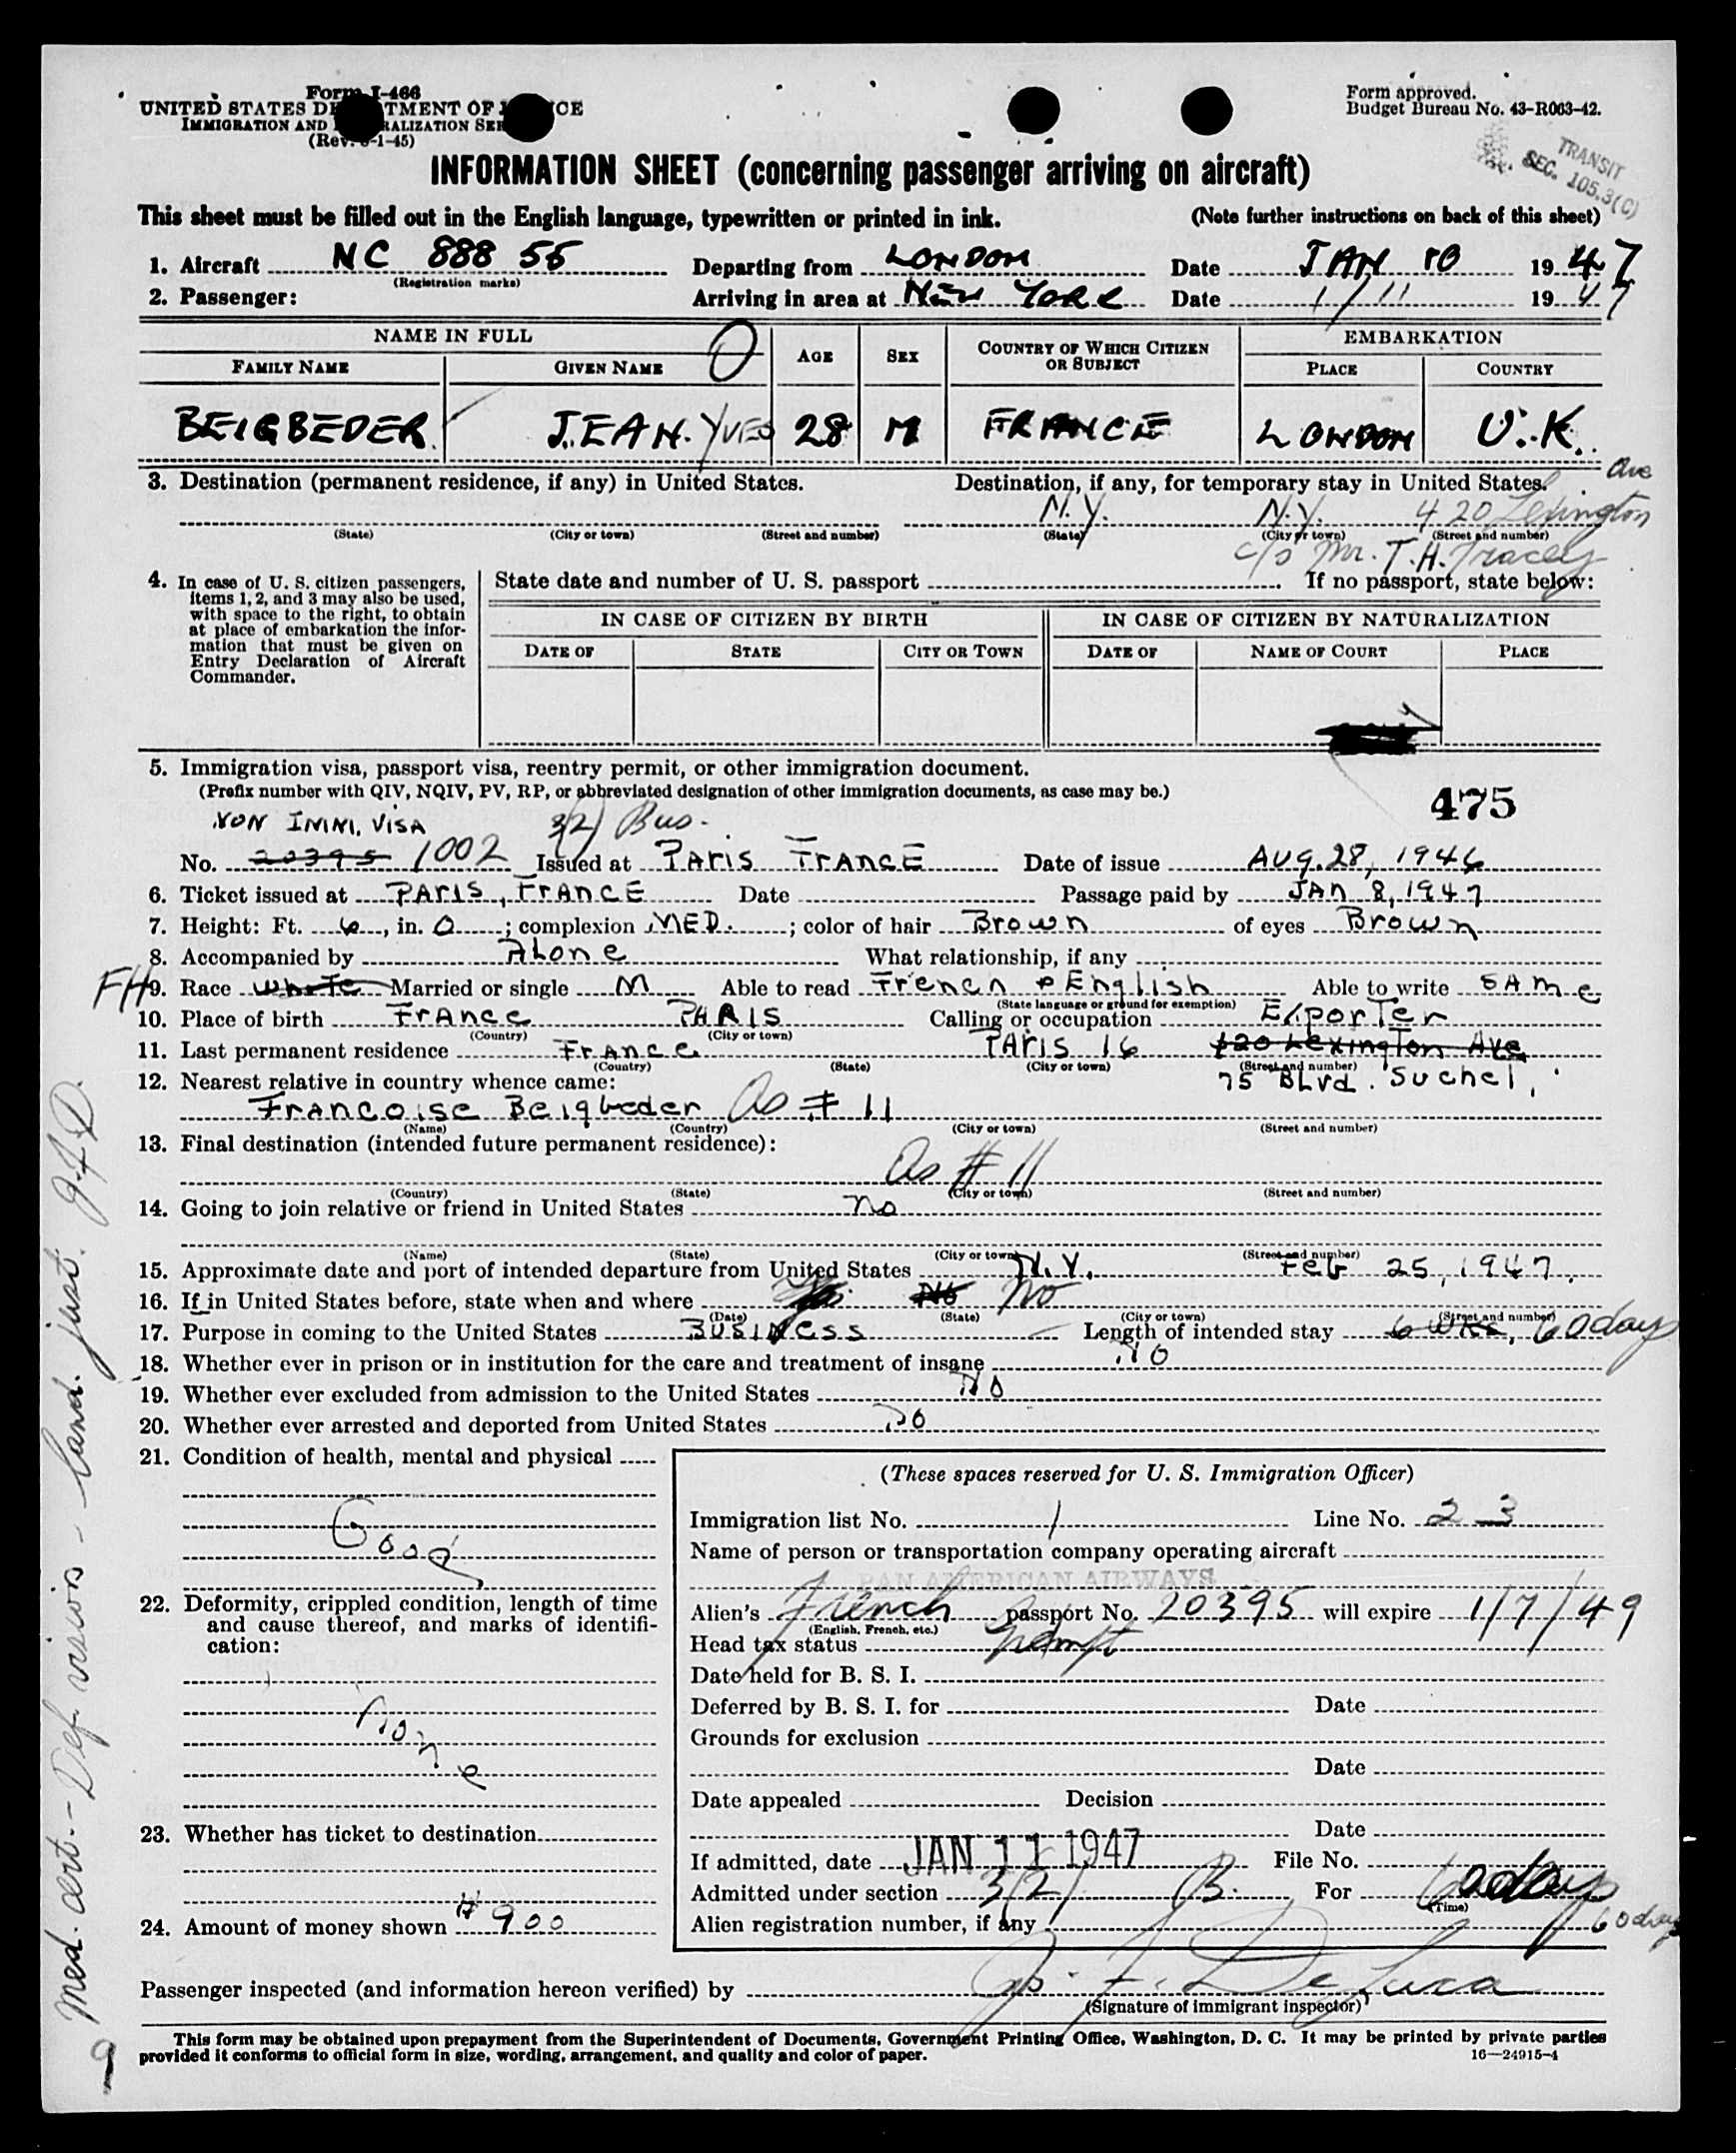 Form I-466
UNITED STATES DE TMENT OF J CE
IMMIGRATION AND RALIZATION SER
(Rev. -1-45)
Form approved.
Budget Bureau No. 43-R063-42.
TRANSIT
SEC. 105.3(C)
INFORMATION SHEET (concerning passenger arriving on aircraft)
This sheet must be filled out in the English language, typewritten or printed in ink. (Note further instructions on back of this sheet)
1. Aircraft NC 888 55 Departing from LONDON Date JAN 10 1947
(Registration marks)
2. Passenger: Arriving in area at NEW YORK Date 1/11 1947
NAME IN FULL AGE SEX COUNTRY OF WHICH CITIZEN OR SUBJECT EMBARKATION
FAMILY NAME GIVEN NAME PLACE COUNTRY
BEIGBEDER JEAN. YVES 28 M FRANCE LONDON U.K.
3. Destination (permanent residence, if any) in United States. Destination, if any, for temporary stay in United States. Ave
N.Y. N.Y. 420 Lexington
(State) (City or town) (Street and number) (State) (City or town) (Street and number)
c/o Mr. T.H. Tracey
4. In case of U. S. citizen passengers, items 1, 2, and 3 may also be used, with space to the right, to obtain at place of embarkation the information that must be given on Entry Declaration of Aircraft Commander.
State date and number of U. S. passport . If no passport, state below:
IN CASE OF CITIZEN BY BIRTH IN CASE OF CITIZEN BY NATURALIZATION
DATE OF STATE CITY OR TOWN DATE OF NAME OF COURT PLACE
5. Immigration visa, passport visa, reentry permit, or other immigration document.
(Prefix number with QIV, NQIV, PV, RP, or abbreviated designation of other immigration documents, as case may be.) 475
NON IMMI. VISA 3(2) Bus.
No. 20395 1002 Issued at PARIS FRANCE Date of issue AUG. 28, 1946
6. Ticket issued at PARIS, FRANCE Date Passage paid by JAN 8, 1947
7. Height: Ft. 6, in. 0; complexion MED.; color of hair Brown of eyes Brown
8. Accompanied by ALone What relationship, if any
FH 9. Race White Married or single M Able to read French & English Able to write SAme
(State language or ground for exemption)
10. Place of birth FrAnce PARIS Calling or occupation ExporTer
(Country) (City or town)
11. Last permanent residence FrAnce PAris 16 420 Lexington Ave
(Country) (State) (City or town) (Street and number)
75 BLvd. Suchel,
12. Nearest relative in country whence came:
Francoise Beigbeder As # 11
(Name) (Country) (City or town) (Street and number)
13. Final destination (intended future permanent residence):
As # 11
(Country) (State) (City or town) (Street and number)
14. Going to join relative or friend in United States no
(Name) (State) (City or town) (Street and number)
15. Approximate date and port of intended departure from United States N.Y. Feb 25, 1947.
16. If in United States before, state when and where No No
(Date) (State) (City or town) (Street and number)
17. Purpose in coming to the United States BUSINess Length of intended stay 6 WKS, 60 days
18. Whether ever in prison or in institution for the care and treatment of insane NO
19. Whether ever excluded from admission to the United States NO
20. Whether ever arrested and deported from United States NO
21. Condition of health, mental and physical
Good
22. Deformity, crippled condition, length of time and cause thereof, and marks of identification:
None
23. Whether has ticket to destination
24. Amount of money shown $900
(These spaces reserved for U. S. Immigration Officer)
Immigration list No. 1 Line No. 23
Name of person or transportation company operating aircraft
PAN AMERICAN AIRWAYS
Alien's French passport No. 20395 will expire 1/7/49
(English, French, etc.)
Head tax status Exempt
Date held for B. S. I.
Deferred by B. S. I. for Date
Grounds for exclusion
Date
Date appealed Decision
Date
If admitted, date JAN 11 1947 File No.
Admitted under section 3(2) B. For 60 days
(Time)
Alien registration number, if any 60 days
Passenger inspected (and information hereon verified) by J. F. DeLuca
(Signature of immigrant inspector)
This form may be obtained upon prepayment from the Superintendent of Documents, Government Printing Office, Washington, D. C. It may be printed by private parties
provided it conforms to official form in size, wording, arrangement, and quality and color of paper. 16—24915-4
Med. cert.- Def. vision - land. just. J.F.D.
9